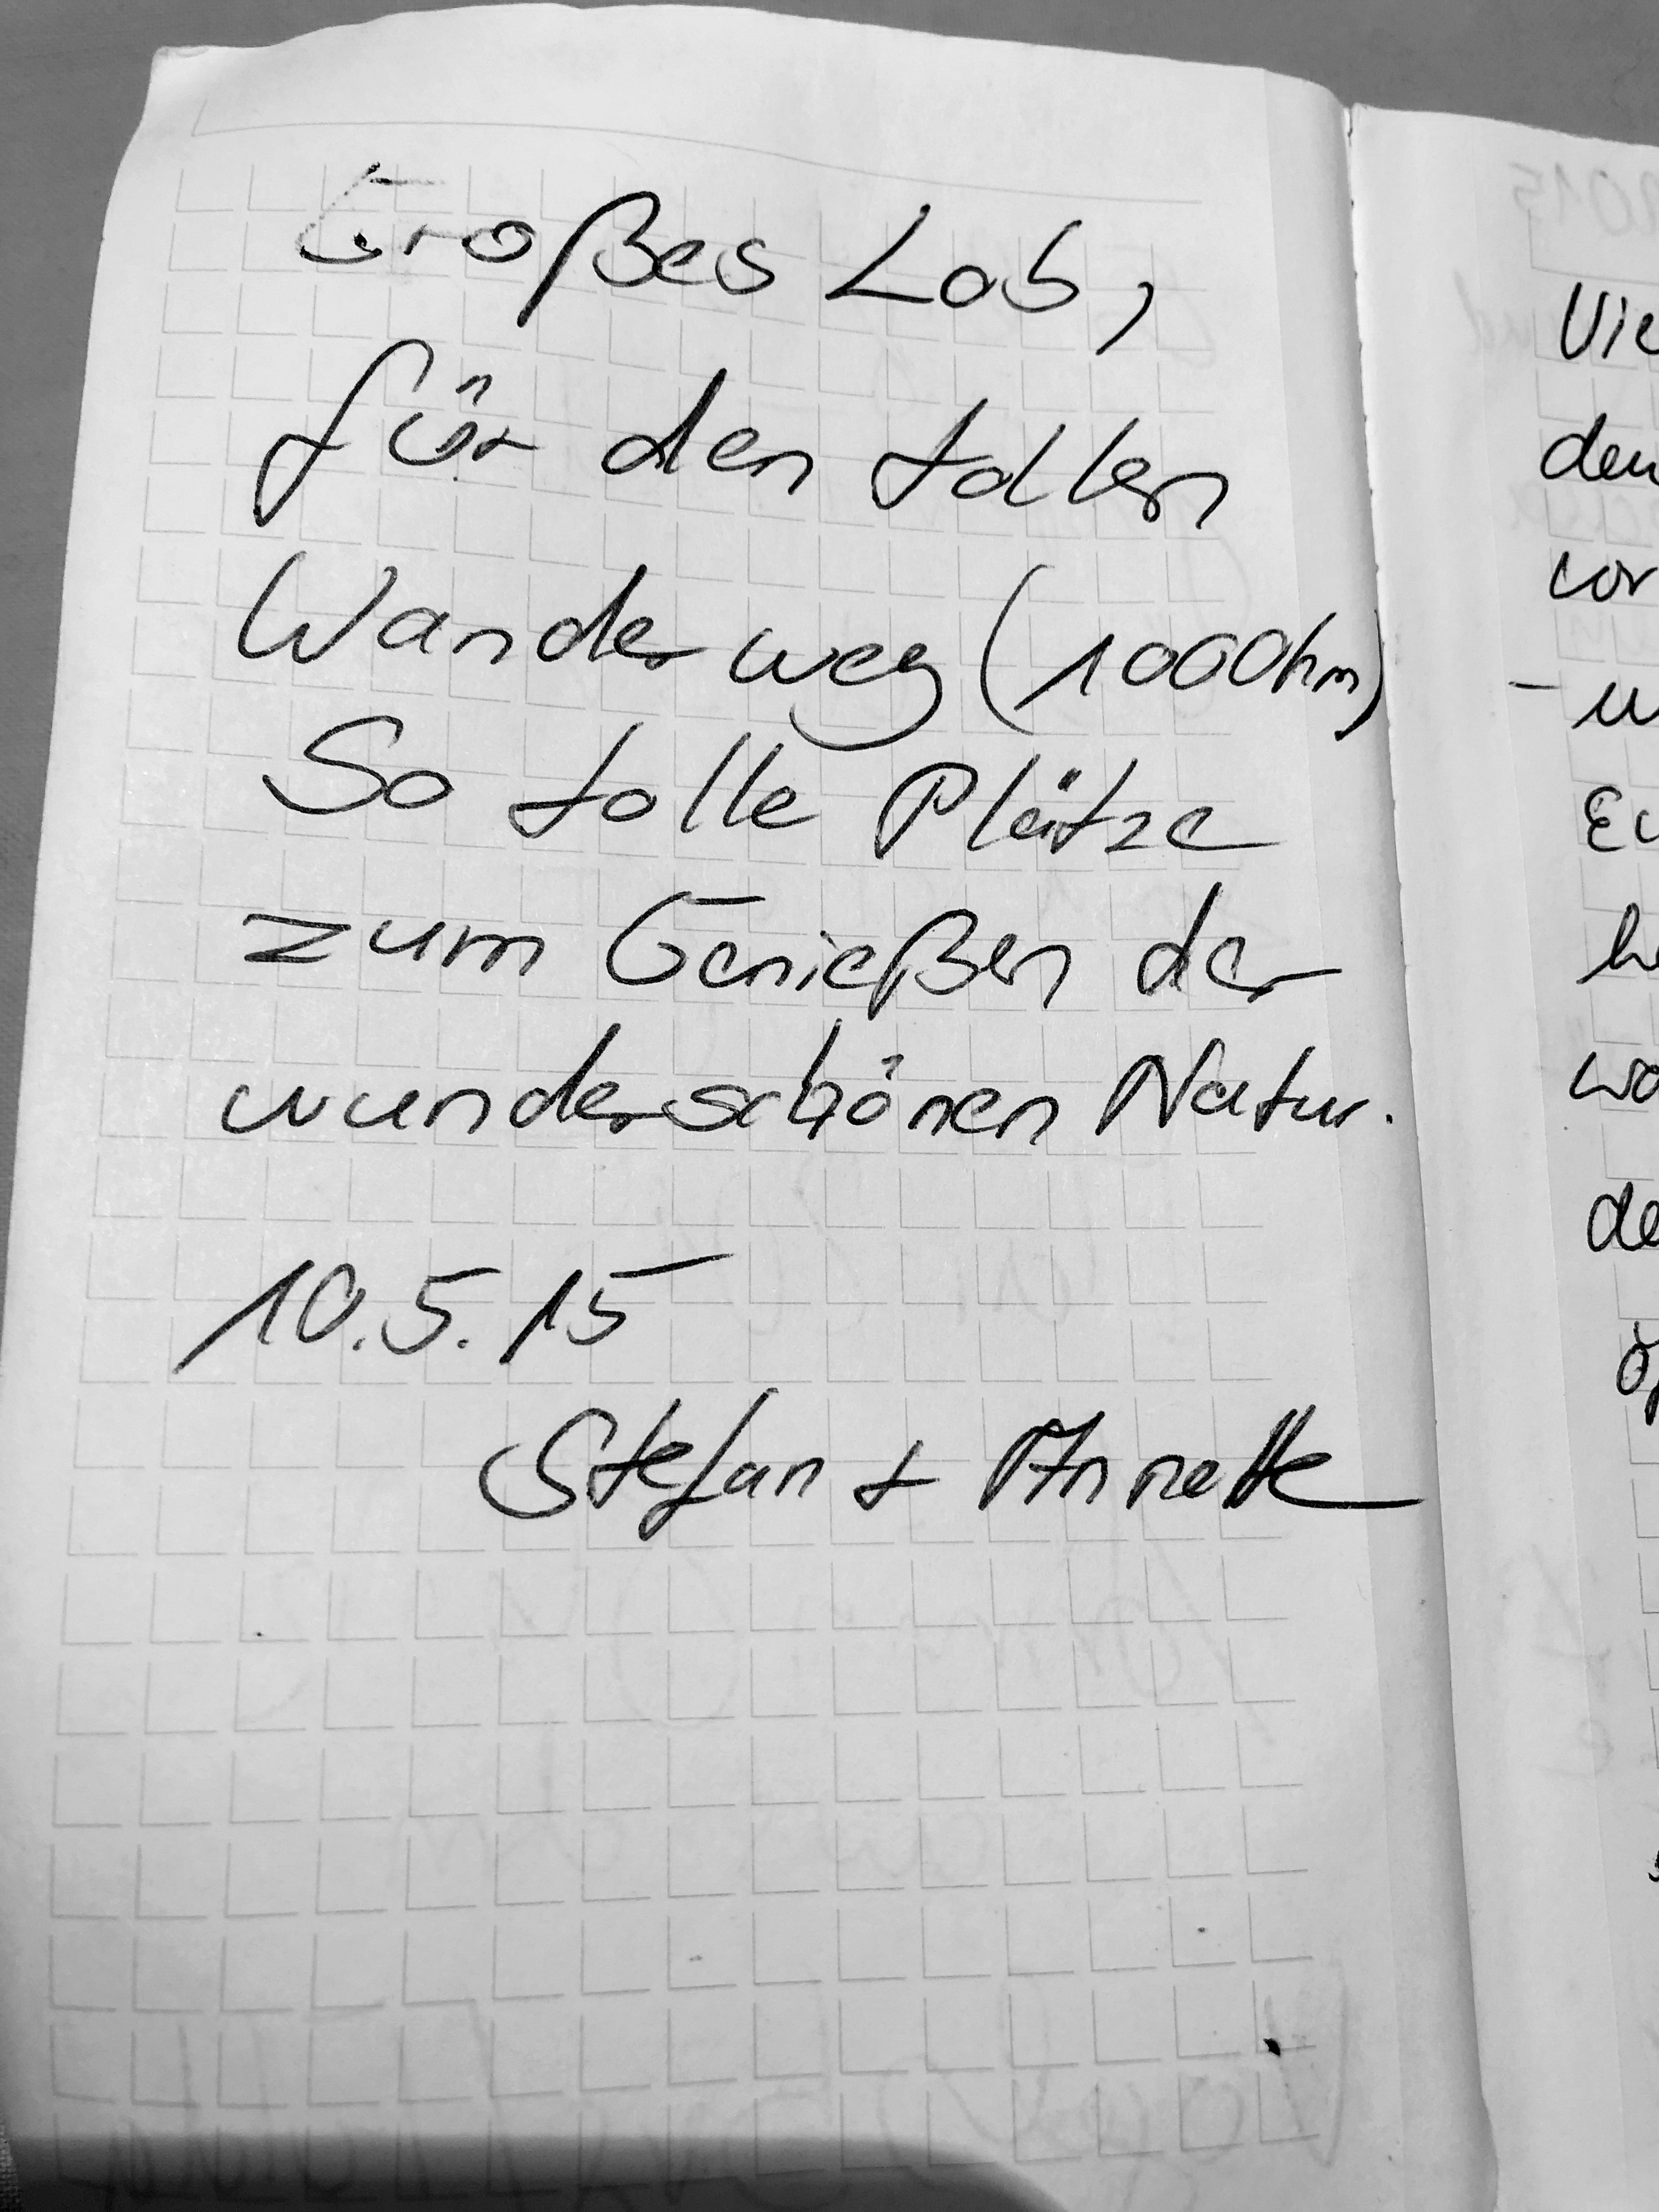 Großes Lob,
für den tollen
Wanderweg (1000hm)
So tolle Plätze
zum Genießen der
wunderschönen Natur.
10.5.15
Stefan + Annette
2015
den
vor